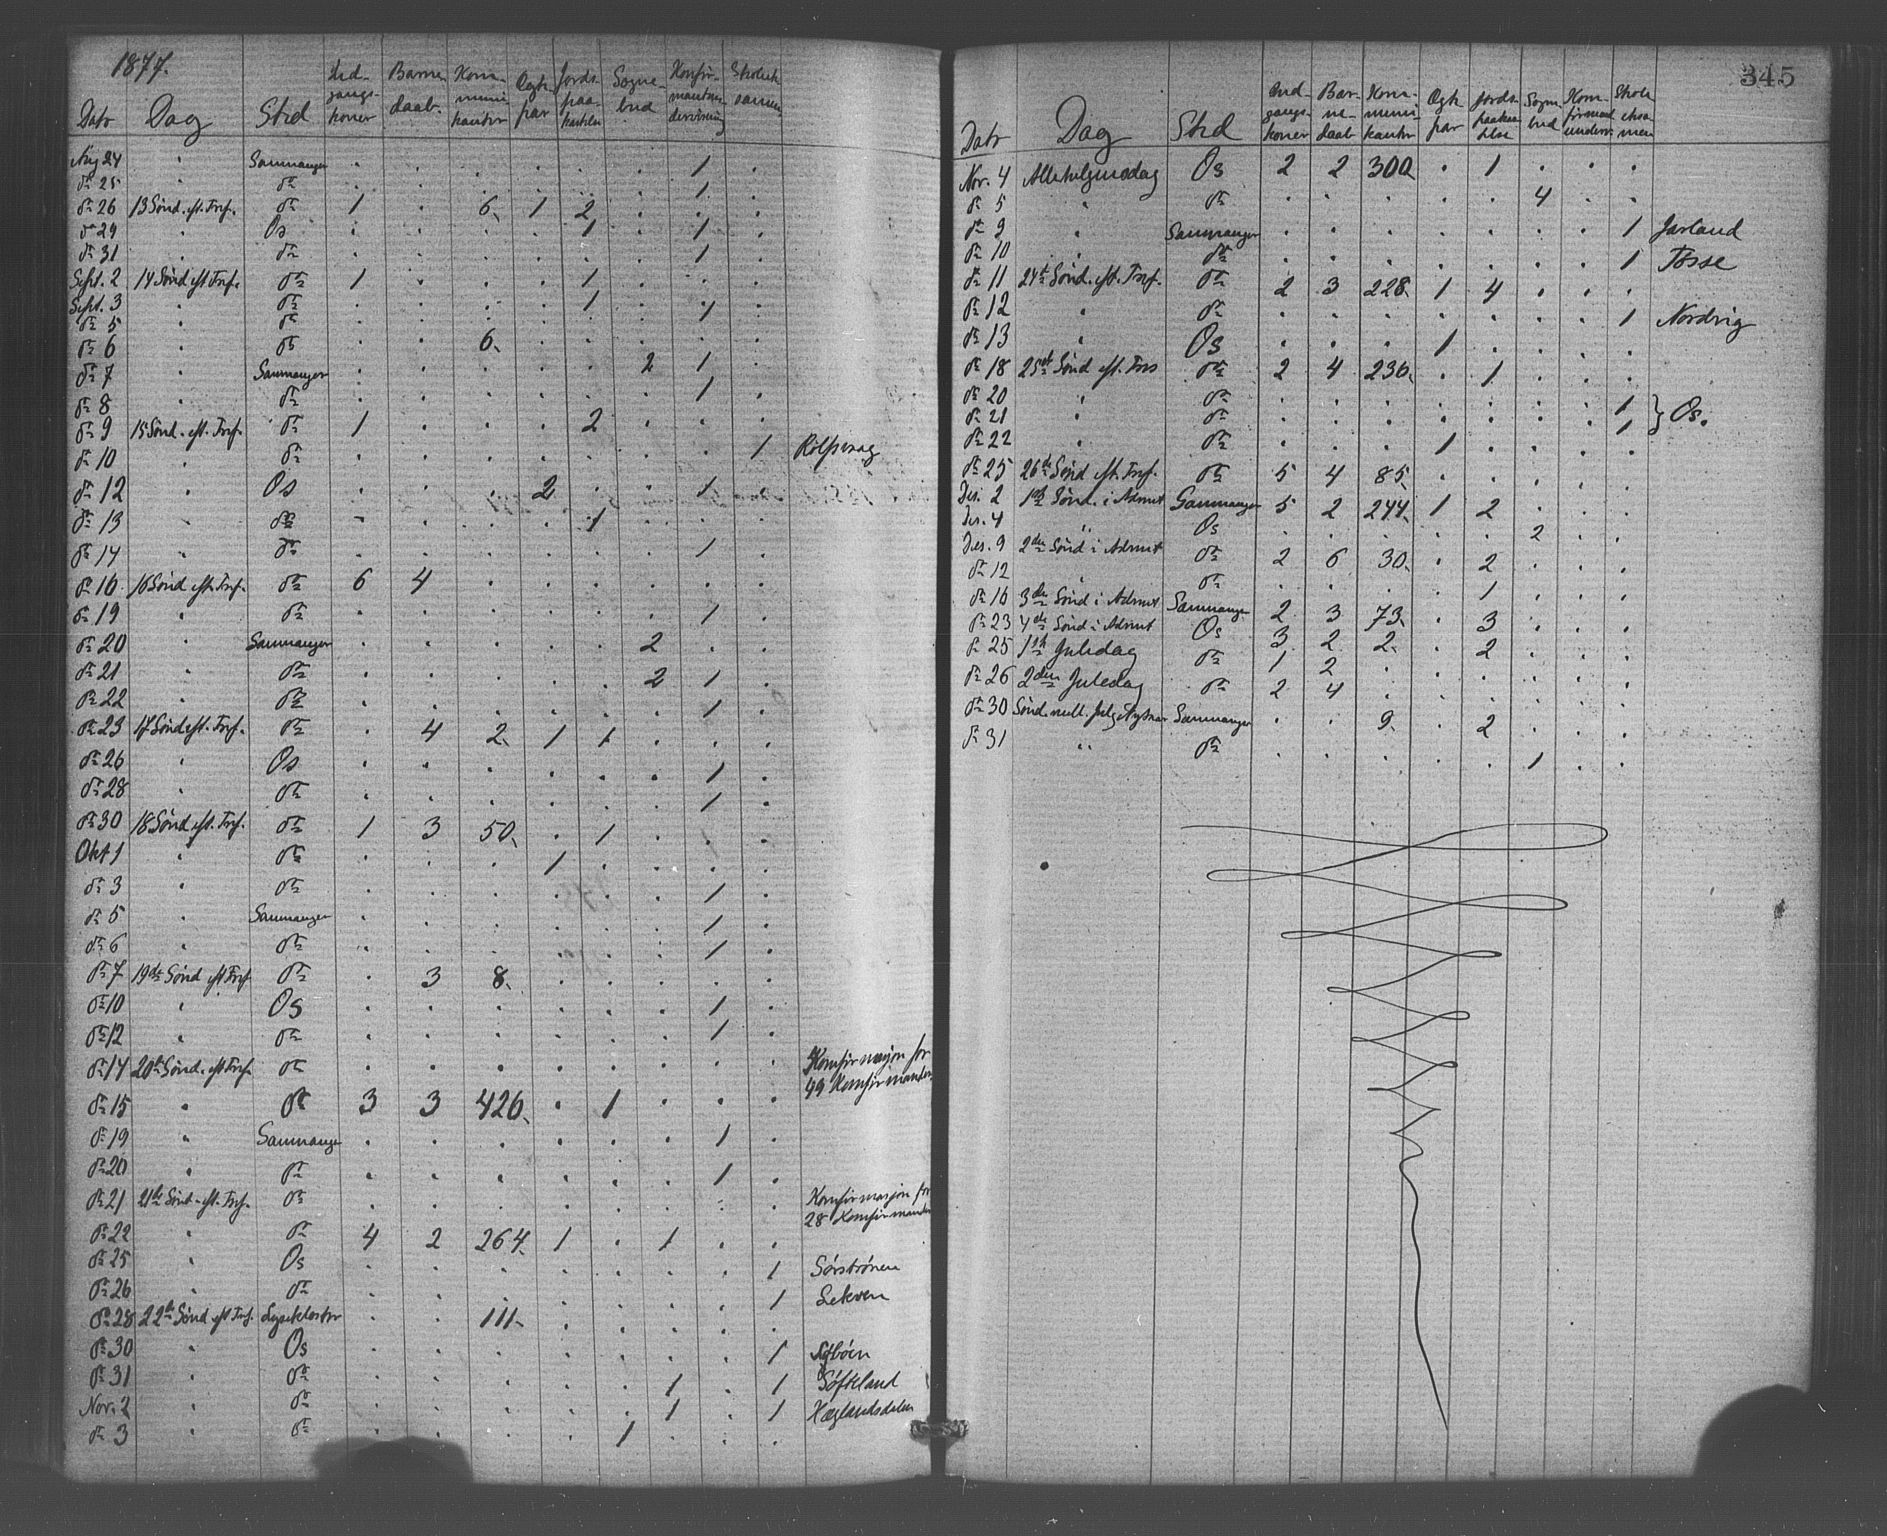 1877.
Dato Dag Sted Ind-gangs-koner Barne daab. Kom-muni kanter Ægte par Jords-paa-kastelse Sogne-bud Konfir-mantun-dervisning Skoleek samen
Aug 24 " Sammanger . . . . . . 1 .
do 25 " do . . . . . . 1 .
do 26 13 Sønd. eft. Tref. do 1 . 6. 1 2 . . .
do 29 " Os . . . . 1 . 1 .
do 31 " do . . . . . . 1 .
Sept. 2 14 Sønd eft Tref. do 1 . . . 1 . . .
Sept. 3 " do . . . . 1 . 1 .
do 5 " do
do 6 " do . . 6. . . . . .
do 7 " Sammanger . . . . . 2 1 .
do 8 " do . . . . . . 1 .
do 9 15 Sønd. eft. Tref. do 1 . . . 2 . . .
do 10 " do . . . . . . . 1 Rølfsvaag
do 12 " Os . . . 2 . . 1 .
do 13 " do . . . . 1 . . .
do 14 " do . . . . . . 1 .
do 16 16 Sønd eft. Tref. do 6 4 . . . . . .
do 19 " do . . . . . . 1 .
do 20 " Sammanger . . . . . 2 . .
do 21 " do . . . . . 2 1 .
do 22 " do . . . . . . 1 .
do 23 17 Sønd eft. Tref. do . 4 2. 1 1 . . .
do 26 " Os . . . . . . 1 .
do 28 " do . . . . . . 1 .
do 30 18 Sønd eft. Tref. do 1 3 50. . 1 . . .
Okt 1 " do . . . 1 . . . .
do 3 " do . . . . . . 1 .
do 5 " Sammanger . . . . . . 1 .
do 6 " do . . . . . . 1 .
do 7 19de Sønd eft Tref do . 3 8. . . . . .
do 10 " Os . . . . . . 1 .
do 12 " do . . . . . . 1 .
do 14 20de Sønd. eft Tref. do . . . . . . . . Konfirmasjon for
49 Konfirmander
do 15 " do 3 3 426. . 1 . . .
do 19 " Sammanger . . . . . . 1 .
do 20 " do . . . . . . 1 .
do 21 21de Sønd. eft. Tref. do . . . . . . . . Konfirmasjon for
28 Konfirmander
do 22 " do 4 2 264. 1 . 1 . .
do 25 " Os . . . . . . . 1 Sørstrønen
do 26 " do . . . . . . . 1 Lekven
do 28 22de Sønd eft Tref. Lyseklostr . . 111. . . . . .
do 30 " Os . . . . . . . 1
do 31 " do . . . . . 1 . 1 Søfteland
Nov. 2 " do . . . . . 1 . 1 Hæglandsdalen
do 3 " do . . . . 1 . . .
345
Dato Dag Sted Ind-gangs-koner Bar-ne-daab Kom-muni-kanter Ægte par Jords-paakas telse Sogne bud Kon-firmand underv. Skole eksa-men
Nov. 4 Allehelgensdag Os 2 2 300. . 1 . . .
do 5 " do . . . . . 4 . .
do 9 " Sammanger . . . . . . . 1 Jarland
do 10 " do . . . . . . . 1 Tøsse
do 11 24de Sønd. eft. Tref. do 2 3 228. 1 4 . . .
do 12 " do . . . . . . . 1 Nordvig
do 13 " Os . . . 1 . . . .
do 18 25de Sønd eft. Tref do 2 4 236. . 1 . . .
do 20 " do . . . . . . . 1 } Os.
do 21 " do . . . . . . . 1
do 22 " do . . . 1 . . . .
do 25 26de Sønd eft. Tref. do 5 4 85. . . . . .
Des. 2 1ste Sønd. i Advent Sammanger 5 2 244. 1 2 . . .
Des. 4 " Os . . . . . 2 . .
Des. 9 2den Sønd i Advent do 2 6 30. . 2 . . .
do 12 " do . . . . 1 . . .
do 16 3de Sønd i Advent Sammanger 2 3 73. . 3 . . .
do 23 4de Sønd i Advent Os 3 2 2. . 2 . . .
do 25 1ste Juledag do 1 2 . . . . . .
do 26 2den Juledag do 2 4 . . . . . .
do 30 Sønd. mell. Jul & Nytaar Sammanger . . 9. . 2 . . .
do 31 " do . . . . . 1 . .